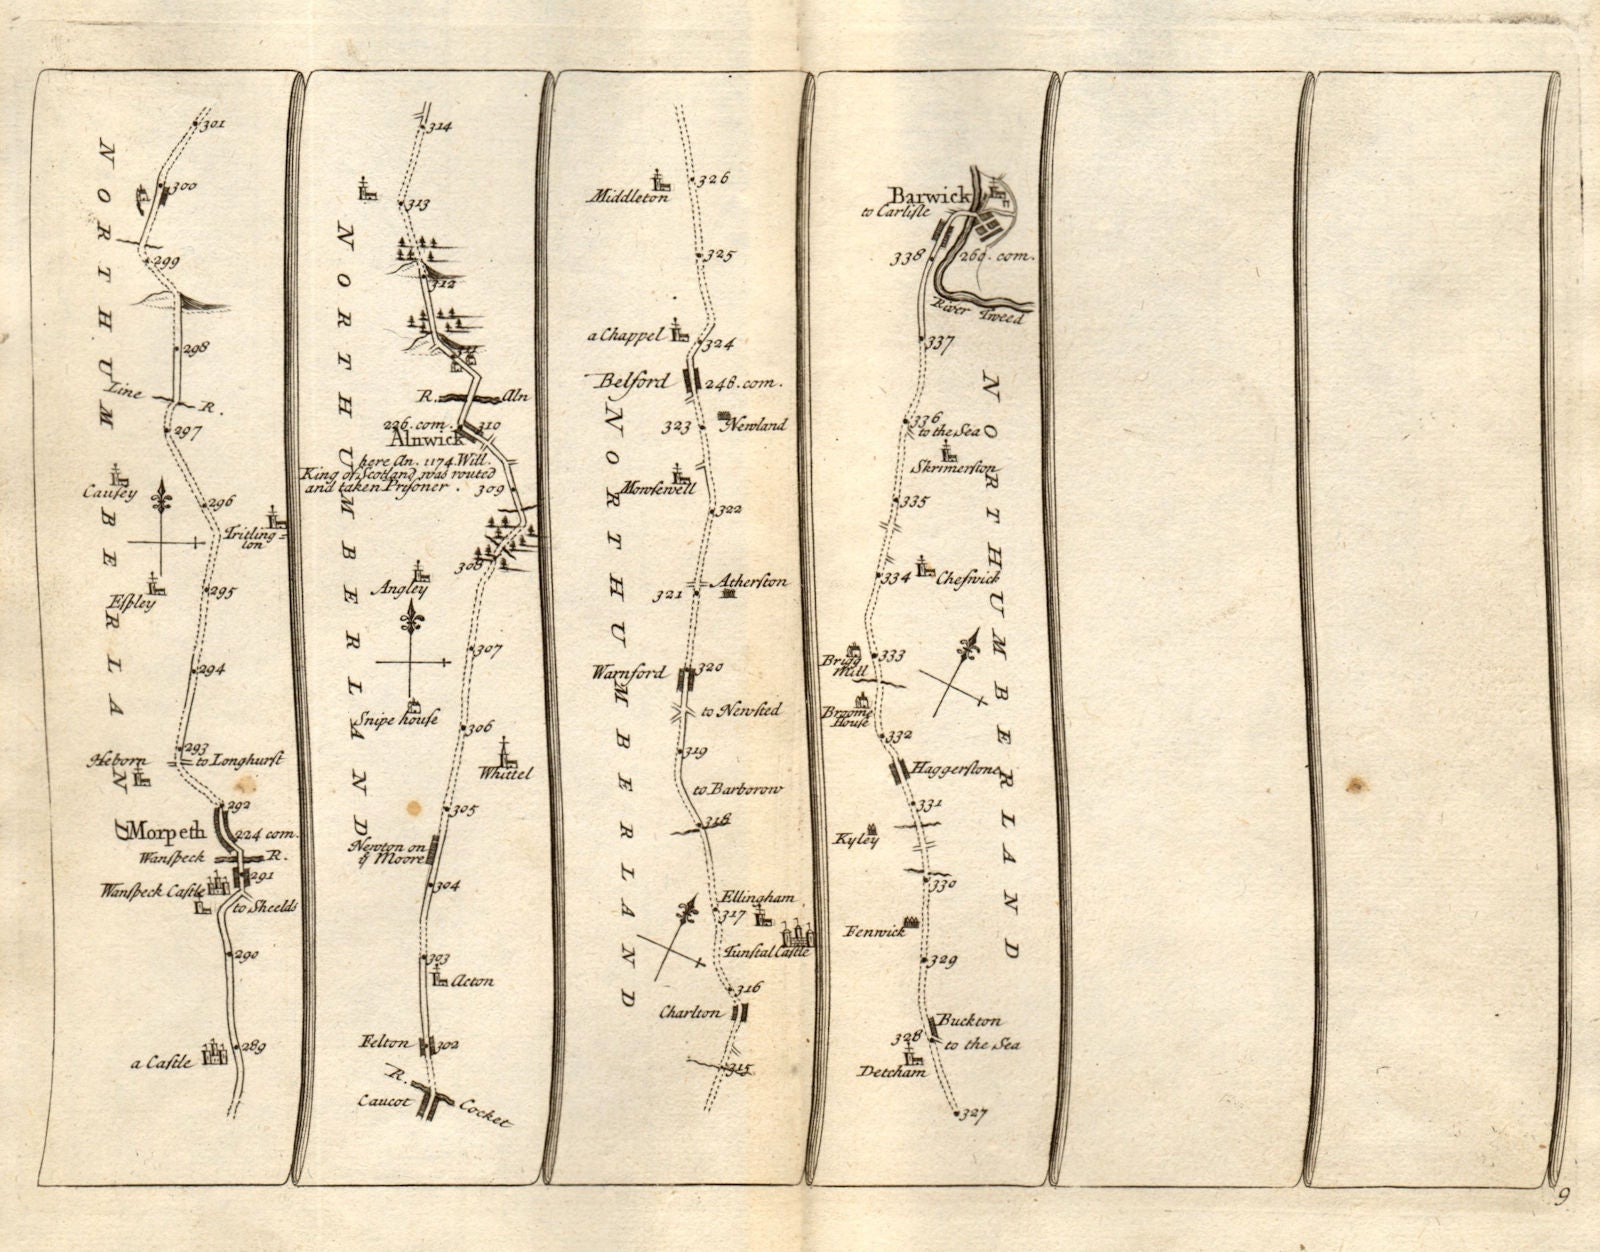 NORTHUMBERLAND
301
300
299
298
Line
R.
297
Causey
296
Tritling=
ton
295
Espley
294
293
Heborn
to Longhurst
292
Morpeth
224 com.
Wanspeck
R.
291
Wanspeck Castle
to Sheelds
290
289
a Castle
NORTHUMBERLAND
314
313
312
311
R.
Aln
226. com.
310
Alnwick
here An. 1174. Will.
King of Scotland was routed
and taken Prisoner.
309
308
Angley
307
Snipe house
306
Whittel
305
Newton on
ỹ Moore
304
303
Acton
Felton
302
R.
Caucot
Cocket
NORTHUMBERLAND
326
Middleton
325
a Chappel
324
Belford
248. com.
323
Newland
Mowsewell
322
Atherston
321
Warnford
320
to Newsted
319
to Barborow
318
Ellingham
317
Tunstal Castle
316
Charlton
315
NORTHUMBERLAND
Barwick
to Carlisle
338
260. com.
River Tweed
337
336
to the Sea
Skrimerston
335
334
Cheswick
Brigg
Mill
333
Broome
House
332
Haggerstone
331
Kyley
330
Fenwick
329
Buckton
328
to the Sea
Detcham
327
9